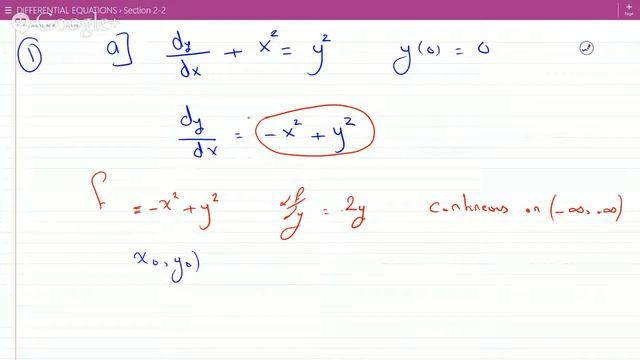 DIFFERENTIAL EQUATIONS › Section 2-2
Page
Google+
① a] dy/dx + x² = y² y(0) = 0
dy/dx = -x² + y²
f = -x² + y² ∂f/∂y = 2y continuous on (-∞, ∞)
x₀, y₀)